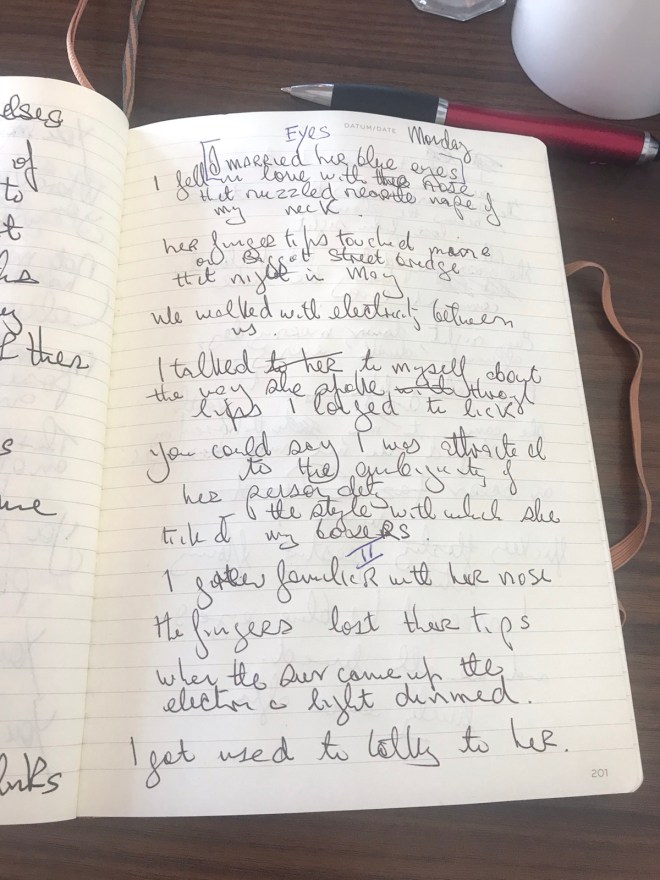 of
to
t
f ther
s
me
Eyes DATUM/DATE Monday
I married her blue eyes
I fell in love with the nose
that nuzzled near the nape of
my neck.
her finger tips touched mine
on Baggot Street bridge
that night in May
We walked with electricity between
us.
I talked to her to myself about
the way she spoke through
lips I longed to lick
You could say I was attracted
to the ambiguity of
her
& the style with which she
my
II
I familiar with her nose
The fingers lost their tips
when the sun came up the
electric light dimmed.
I got used to talk to her.
201